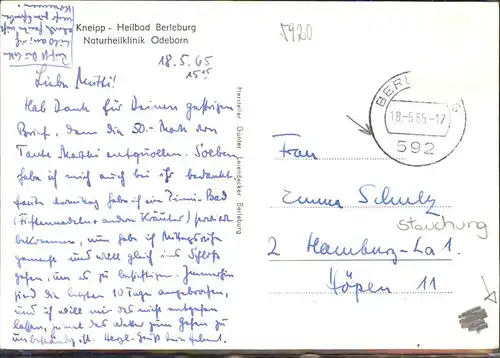 Kneipp - Heilbad Berleburg
Naturheilklinik Odeborn
5920
18.5.65
15⁰⁵
Liebe Mutti!
Hab Dank für Deinen gestrigen
Brief, dem die 50.- Mark von
Tante entquollen. Soeben
habe ich mich auch bei ihr bedankt.
Heute vormittag habe ich ein Zimt-Bad
(Fichtennadeln + andere Kräuter)
bekommen, nun habe ich Mittagsruhe
gemacht und will gleich ins Schloß
gehen, um es zu besichtigen. Immerhin
sind die letzten 10 Tage angebrochen,
und ich will mir das nicht entgehen
lassen, sonst das Wetter zum
unbeständig ist. Herzl. Gruß
Hersteller Günter Leiendecker Berleburg
BERL
18.-5.65-17
592
Frau
Emma Schulz
Stauchung
2 Hamburg-La 1
Höpen 11